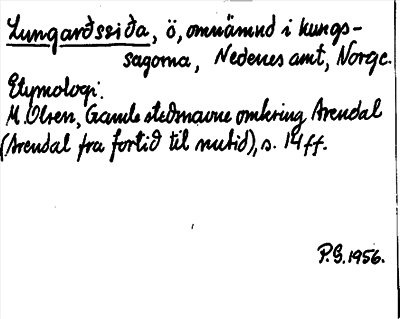 Lungarðssiða, ö, omnämnd i kungs-
sagorna, Nedenes amt, Norge.
Etymologi:
M. Olsen, Gamle stedsnavne omkring Arendal
(Arendal fra fortid til nutid), s. 14 ff.
P.G. 1956.